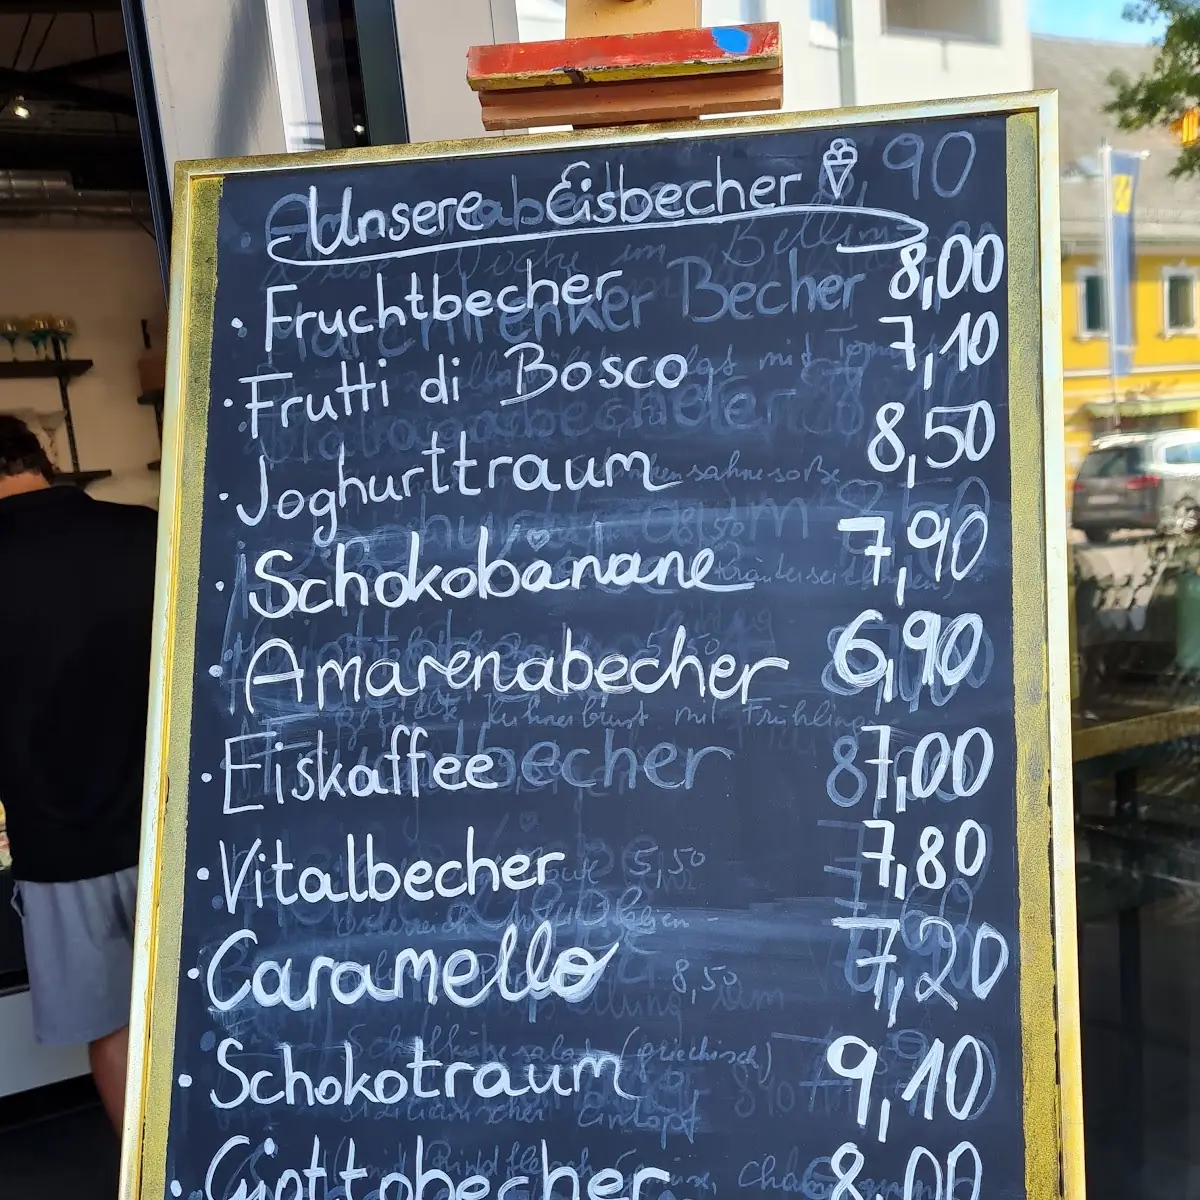 Unsere Eisbecher
• Fruchtbecher 8,00
• Frutti di Bosco 7,10
• Joghurttraum 8,50
• Schokobanane 7,90
• Amarenabecher 6,90
• Eiskaffee 7,00
• Vitalbecher 7,80
• Caramello 7,20
• Schokotraum 9,10
• Giottobecher 8,00